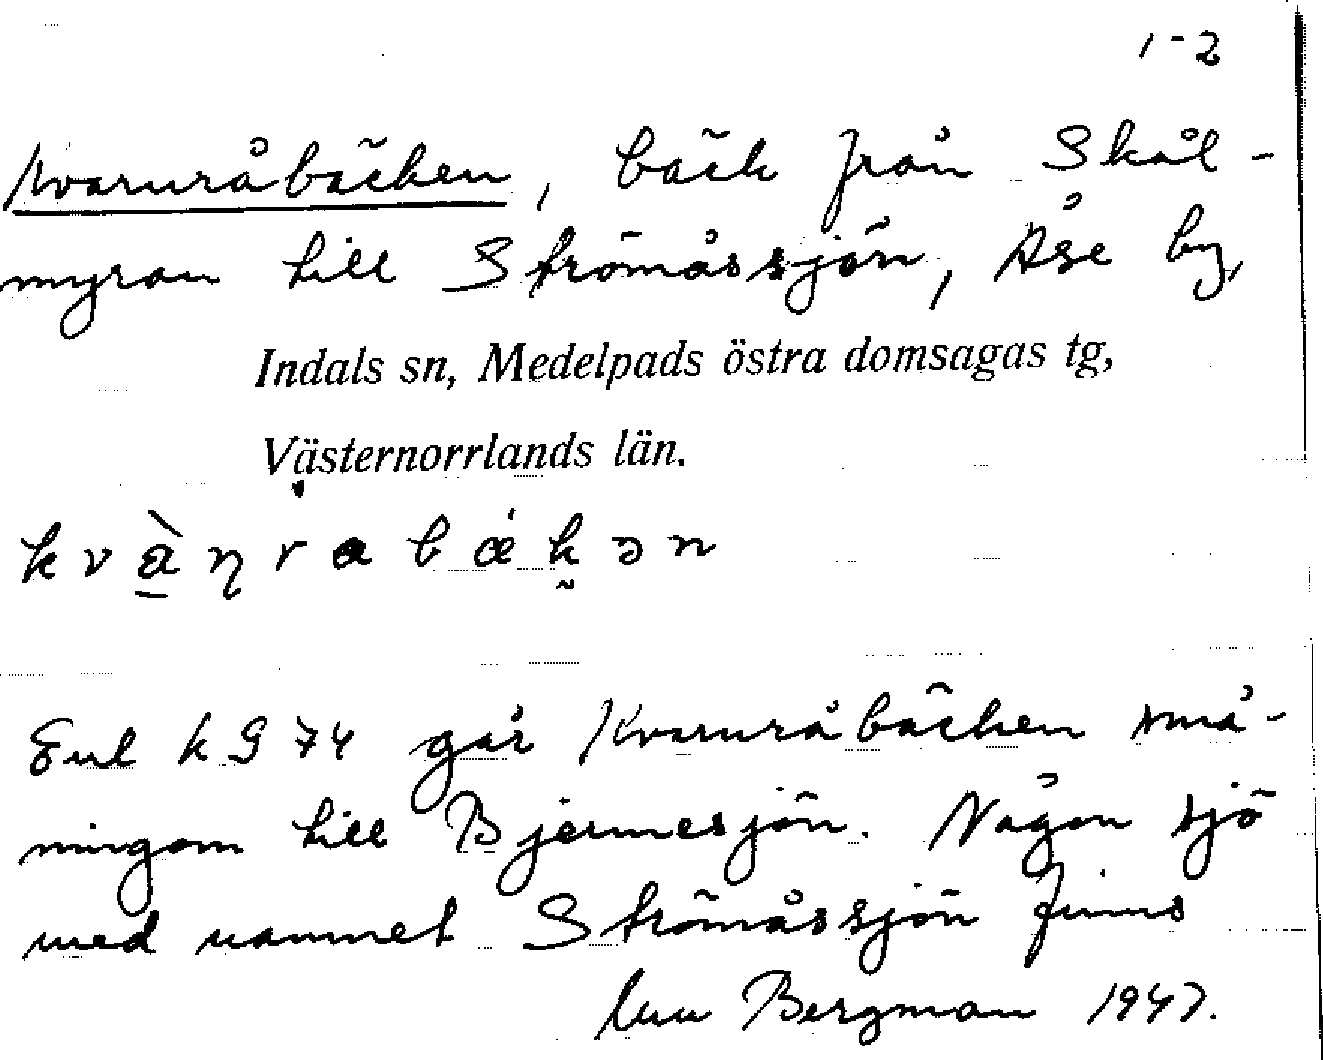 1-2
Kvarnråbäcken, bäck från Skål-
myran till Strömåssjön, Åse by,
Indals sn, Medelpads östra domsagas tg,
Västernorrlands län.
Enl k S 74 går Kvarnråbäcken små-
ningom till Bjermesjön. Någon sjö
med namnet Strömåssjön finns
Bergman 1947.